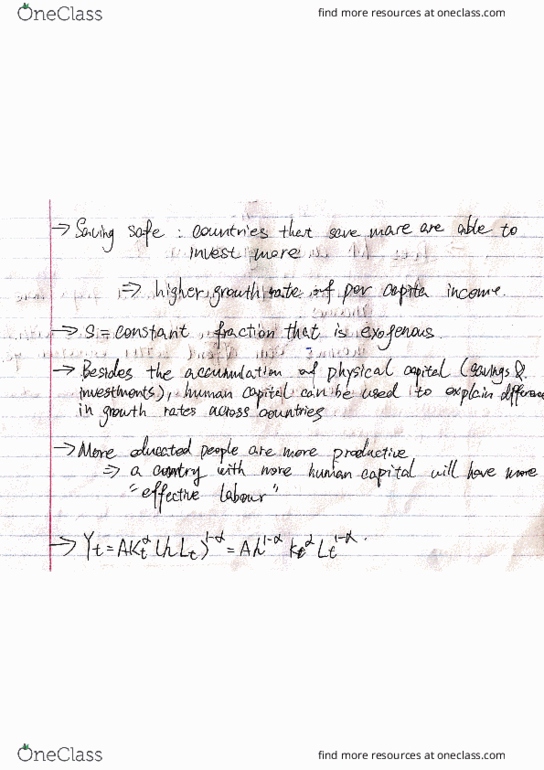 OneClass
find more resources at oneclass.com
→ Saving safe : countries that save more are able to
invest more
⇒ higher growth rate of per capita income.
→ S = constant fraction that is exogenous
→ Besides the accumulation of physical capital (savings &
investments), human capital can be used to explain differenc
in growth rates across countries
→ More educated people are more productive
⇒ a country with more human capital will have more
"effective labour"
→ Yt = AKt^α (h Lt)^1-α = Ah^1-α Kt^α Lt^1-α .
OneClass
find more resources at oneclass.com